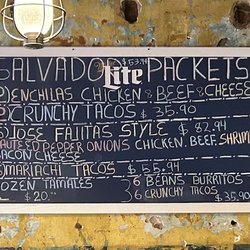 SALVADOR Lite PACKETS
$53.99
ENCHILAS CHICKEN & BEEF & CHEESE
CRUNCHY TACOS $ 35.90
JOSE FAJITAS STYLE $ 82.99
SAUTEED PEPPER ONIONS CHICKEN, BEEF, SHRIMP
BACON CHEESE
MARIACHI TACOS $ 55.99
FROZEN TAMALES
6 BEANS BURRITOS
$ 20.
6 CRUNCHY TACOS $35.90